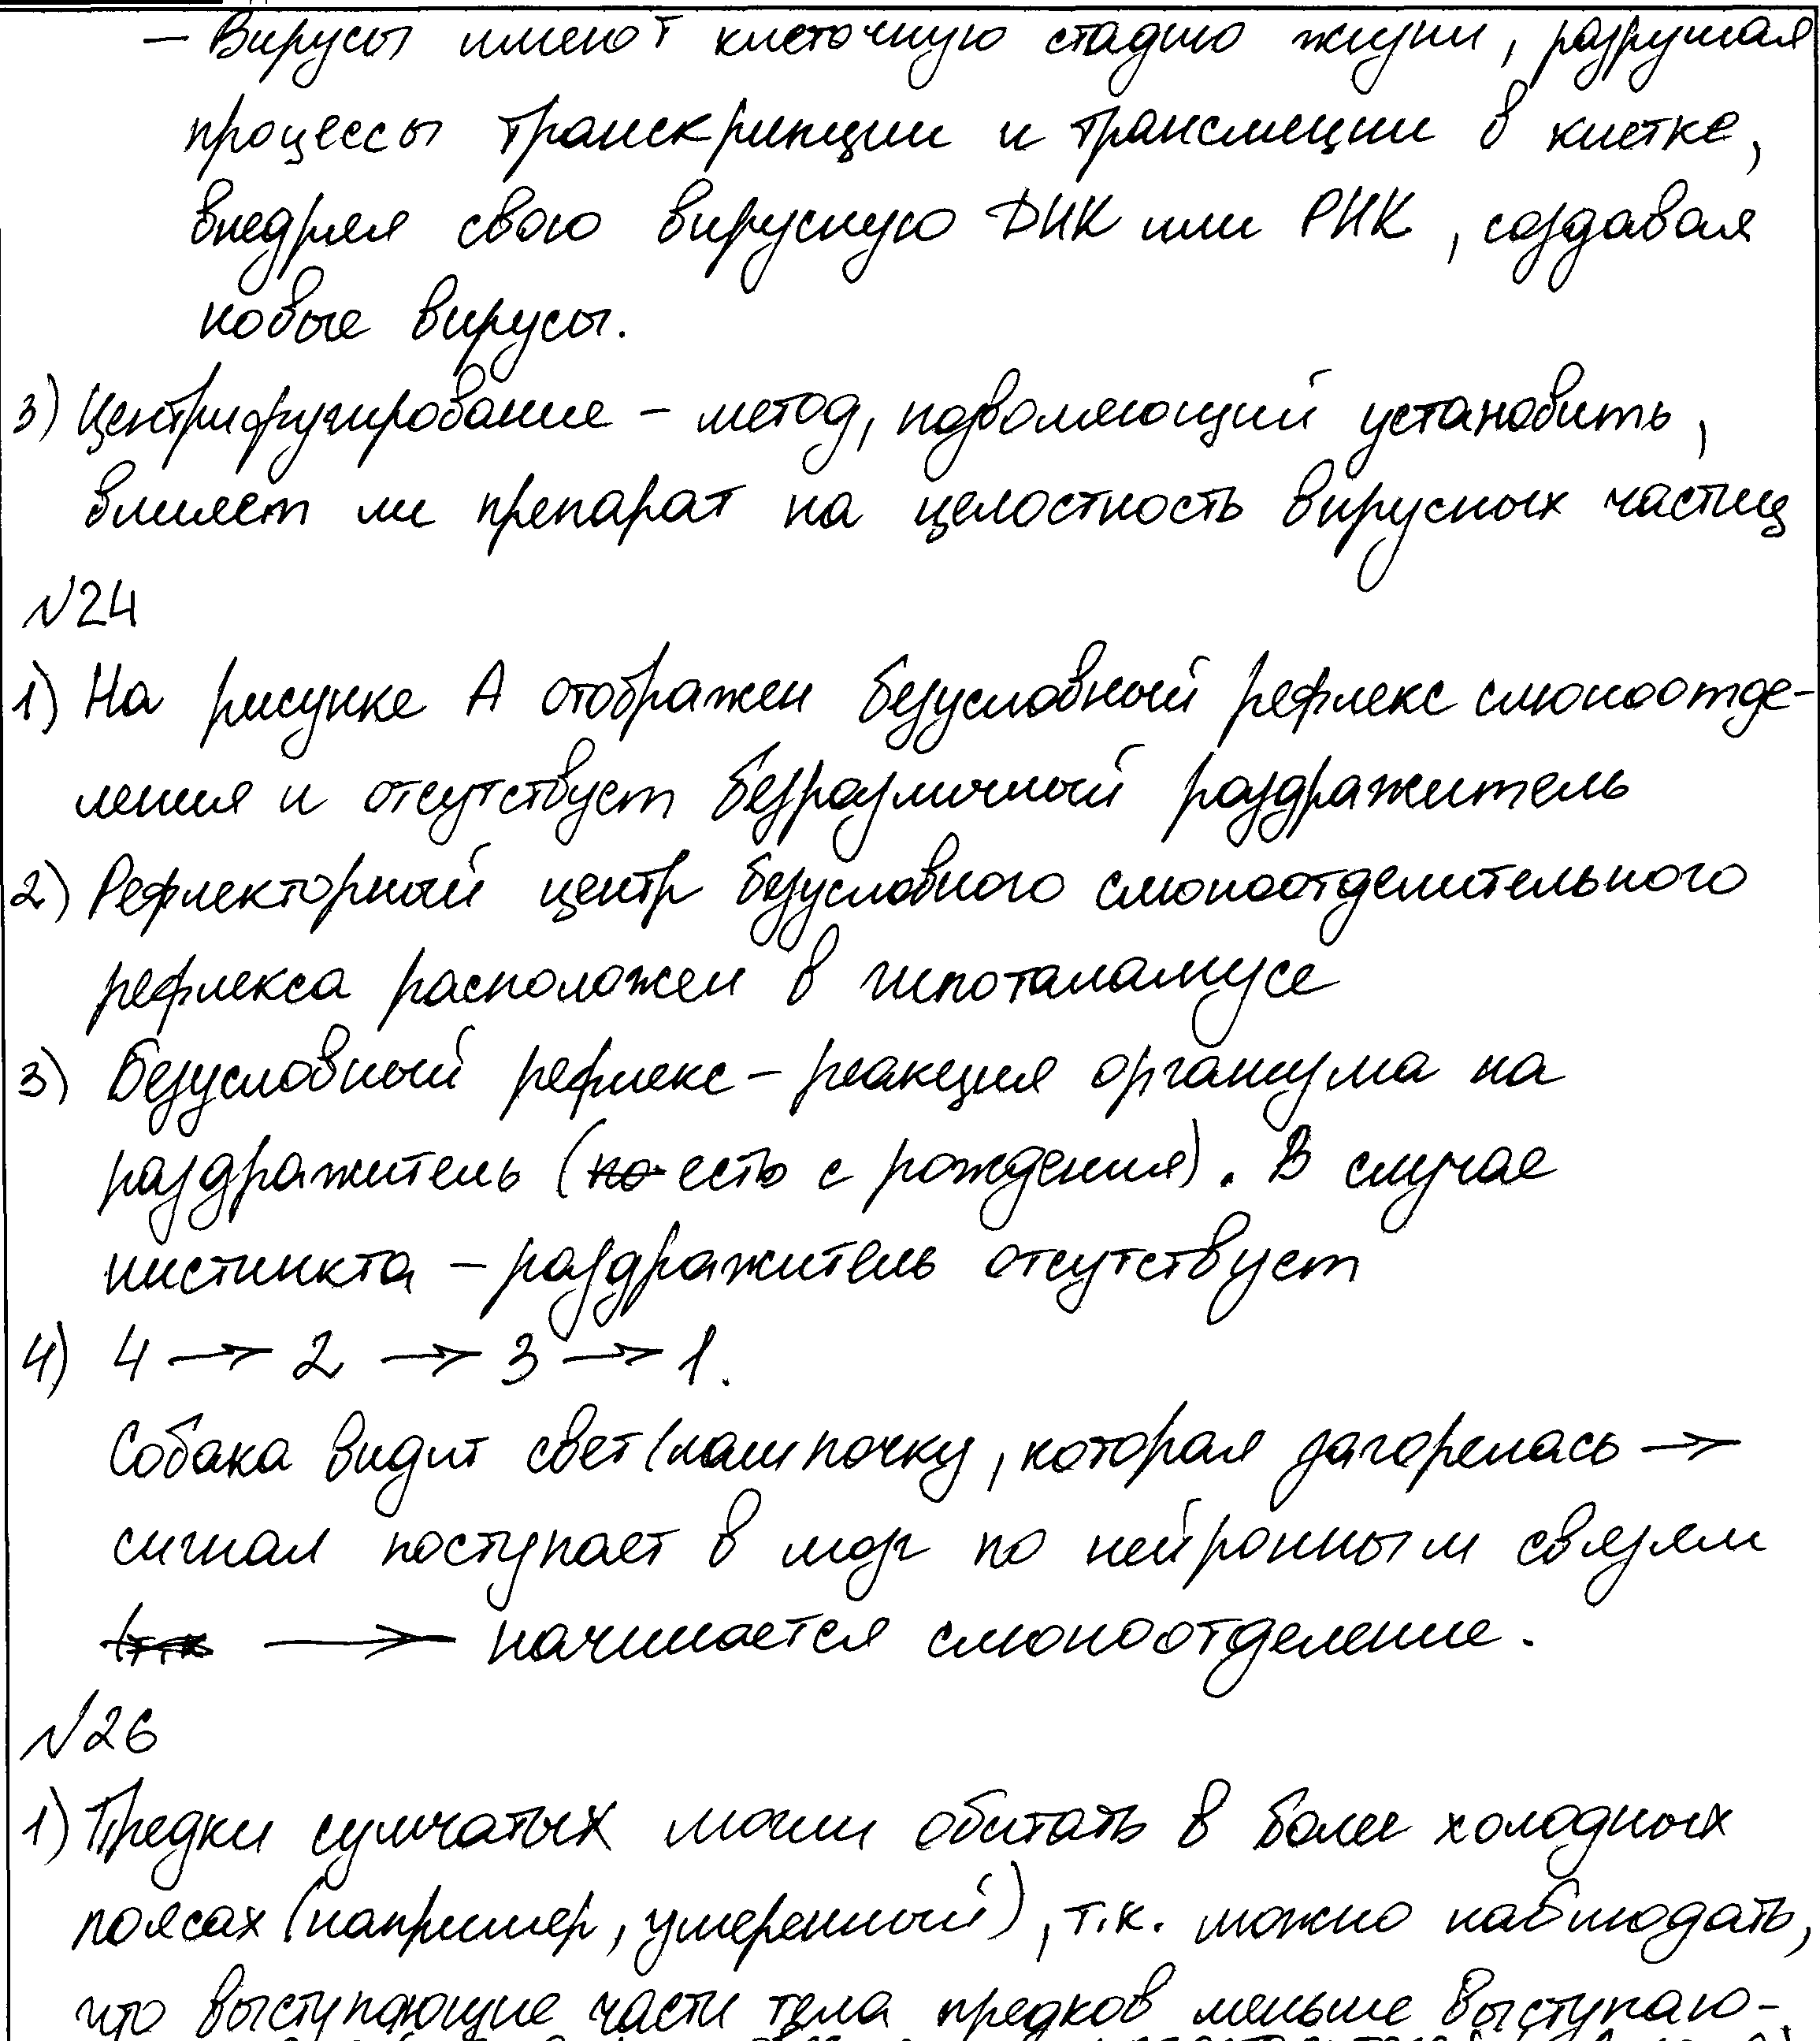 — Вирусы имеют клеточную стадию жизни, разрушая
процессы транскрипции и трансляции в клетке,
внедряя свою вирусную ДНК или РНК, создавая
новые вирусы.
3) Центрифугирование – метод, позволяющий установить,
влияет ли препарат на целостность вирусных частиц
№24
1) На рисунке А отображен безусловный рефлекс слюноотде-
ления и отсутствует безразличный раздражитель
2) Рефлекторный центр безусловного слюноотделительного
рефлекса расположен в гипоталамусе
3) Безусловный рефлекс – реакция организма на
раздражитель (есть с рождения). В случае
инстинкта – раздражитель отсутствует
4) 4 → 2 → 3 → 1.
Собака видит свет/лампочку, которая загорелась →
сигнал поступает в мозг по нейронным связям
→ начинается слюноотделение.
№26
1) Предки сумчатых могли обитать в более холодных
поясах (например, умеренный), т.к. можно наблюдать,
что выступающие части тела предков меньше выступаю-